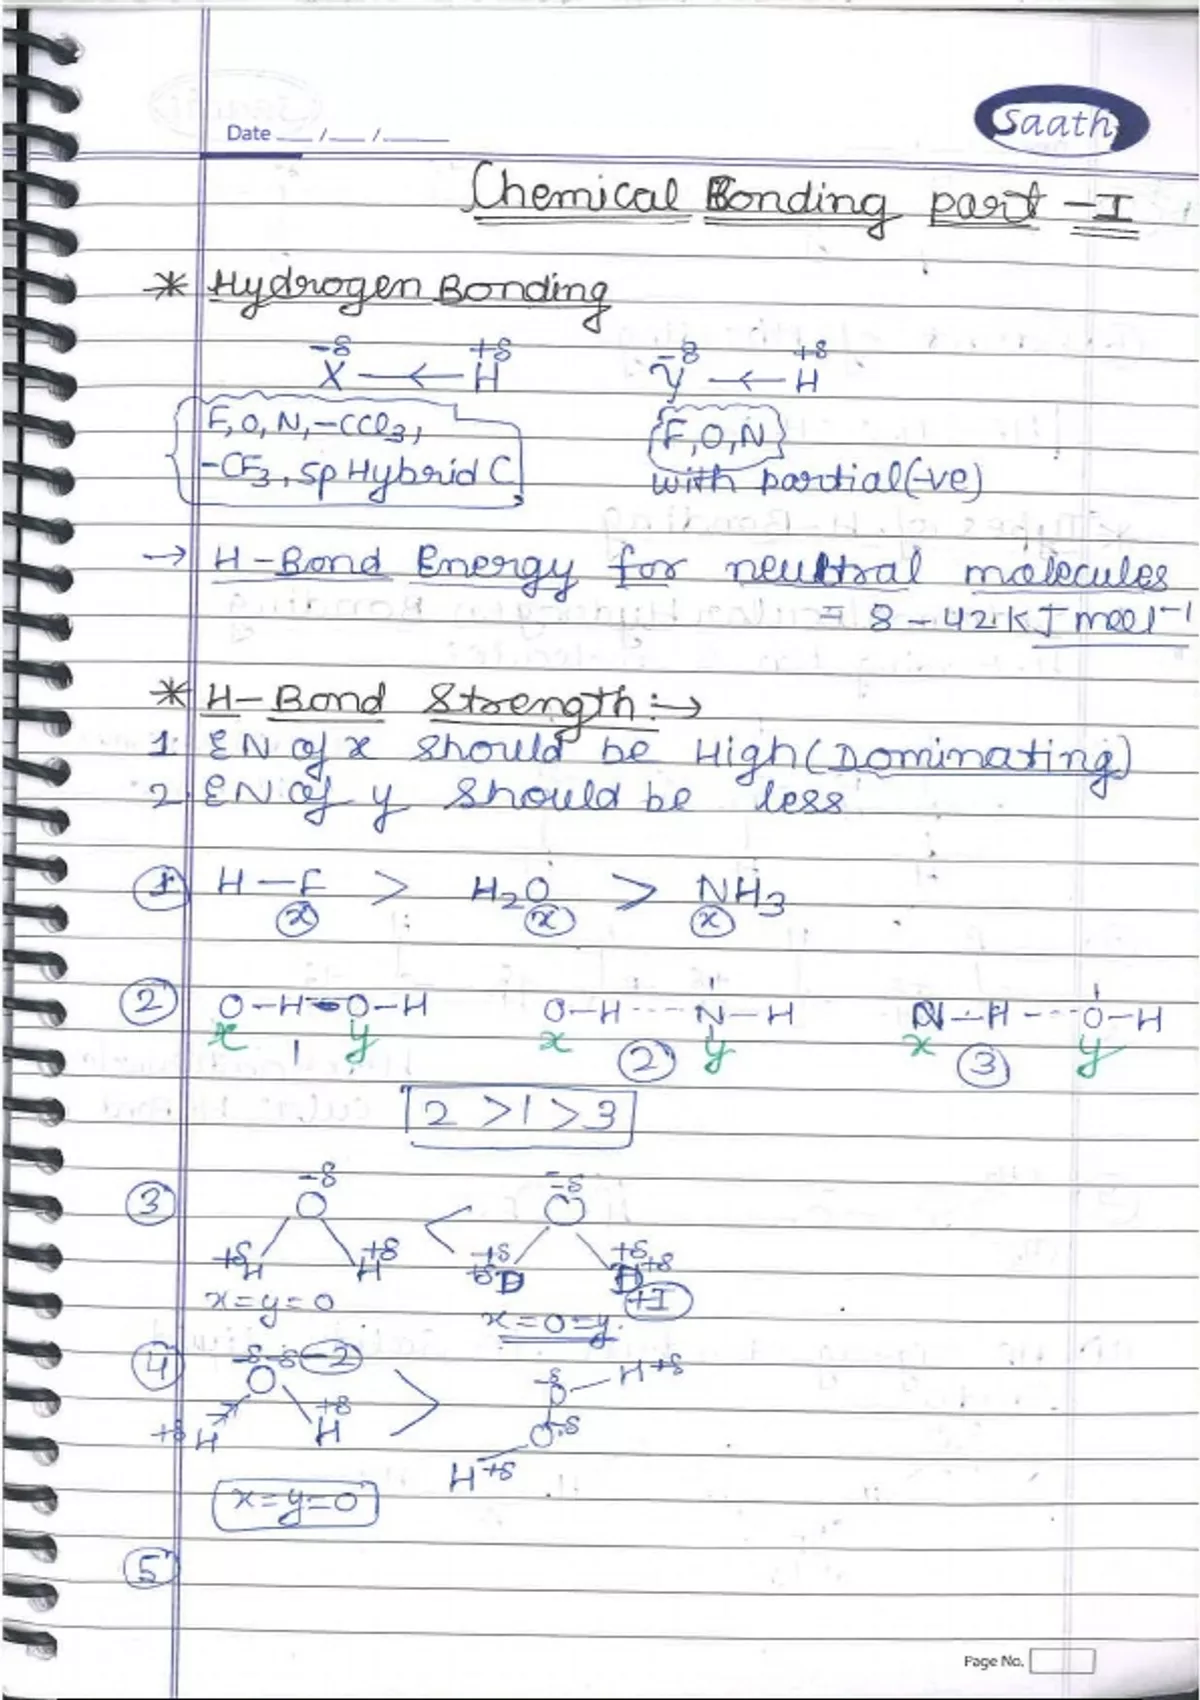 Date __/__/____
Saathi
Chemical Bonding part - I
* Hydrogen Bonding
-δ +δ -δ +δ
X ←— H Y ←— H
F, O, N, -CCl3, F, O, N
-CF3, sp Hybrid C with partial (-ve)
→ H-Bond Energy for neutral molecules
= 8 - 42 kJ mol-1
* H-Bond Strength :→
1. EN of x should be High (Dominating)
2. EN of y should be less
① H-F > H2O > NH3
x x x
② O-H O-H O-H----N-H N-H----O-H
x y x y x y
1 ② ③
2 > 1 > 3
③ -δ -δ
O < O
+δ H H +δ +δ +δ D D +δ +δ
+I
x=y=0 x=0=y
④ -δ-δ -2 > -δ O-H+δ
O O-δ
+δ H H +δ H+δ
x=y=0
⑤
Page No.